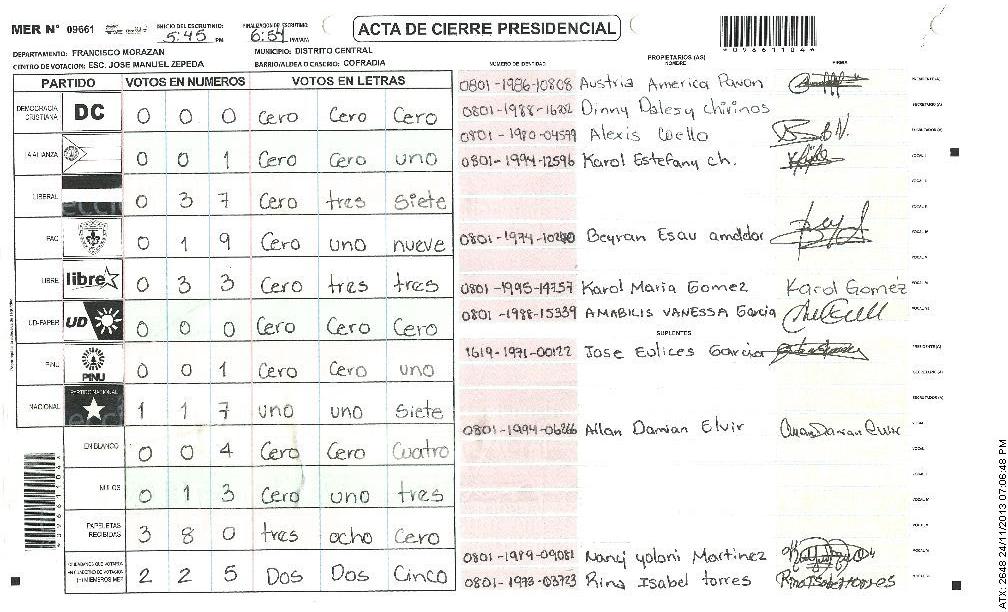 MER N° 09661
INICIO DEL ESCRUTINIO: 5:45 PM
FINALIZACION DE ESCRUTINIO: 6:54
ACTA DE CIERRE PRESIDENCIAL
09661104
DEPARTAMENTO: FRANCISCO MORAZAN
MUNICIPIO: DISTRITO CENTRAL
CENTRO DE VOTACION: ESC. JOSE MANUEL ZEPEDA
BARRIO/ALDEA O CASERIO: COFRADIA
NUMERO DE IDENTIDAD PROPIETARIOS (AS) NOMBRE FIRMA
PARTIDO VOTOS EN NUMEROS VOTOS EN LETRAS
DEMOCRACIA CRISTIANA DC 0 0 0 Cero Cero Cero
LA ALIANZA 0 0 1 Cero Cero uno
LIBERAL 0 3 7 Cero tres Siete
PAC 0 1 9 Cero uno nueve
LIBRE libre 0 3 3 Cero tres tres
UD-FAPER UD 0 0 0 Cero Cero Cero
PINU PINU 0 0 1 Cero Cero uno
NACIONAL PARTIDO NACIONAL 1 1 7 uno uno Siete
EN BLANCO 0 0 4 Cero Cero Cuatro
NULOS 0 1 3 Cero uno tres
PAPELETAS RECIBIDAS 3 8 0 tres ocho Cero
CIUDADANOS QUE VOTARON 2 2 5 Dos Dos Cinco
0801-1986-10808 Austria America Pavon
0801-1988-16282 Dinny Dalesy Chirinos
0801-1980-04579 Alexis Coello
0801-1994-12596 Karol Estefany ch.
0801-1974-10240 Beyran Esau amador
0801-1995-19757 Karol Maria Gomez Karol Gomez
0801-1988-15339 AMABILIS VANESSA Garcia
SUPLENTES
1619-1971-00122 Jose Eulices Garcia
0801-1994-06266 Allan Damian Elvir
0801-1989-09081 Nancy yolani Martinez
0801-1973-03723 Rina Isabel torres
ATX: 2648 24/11/2013 07:06:48 PM